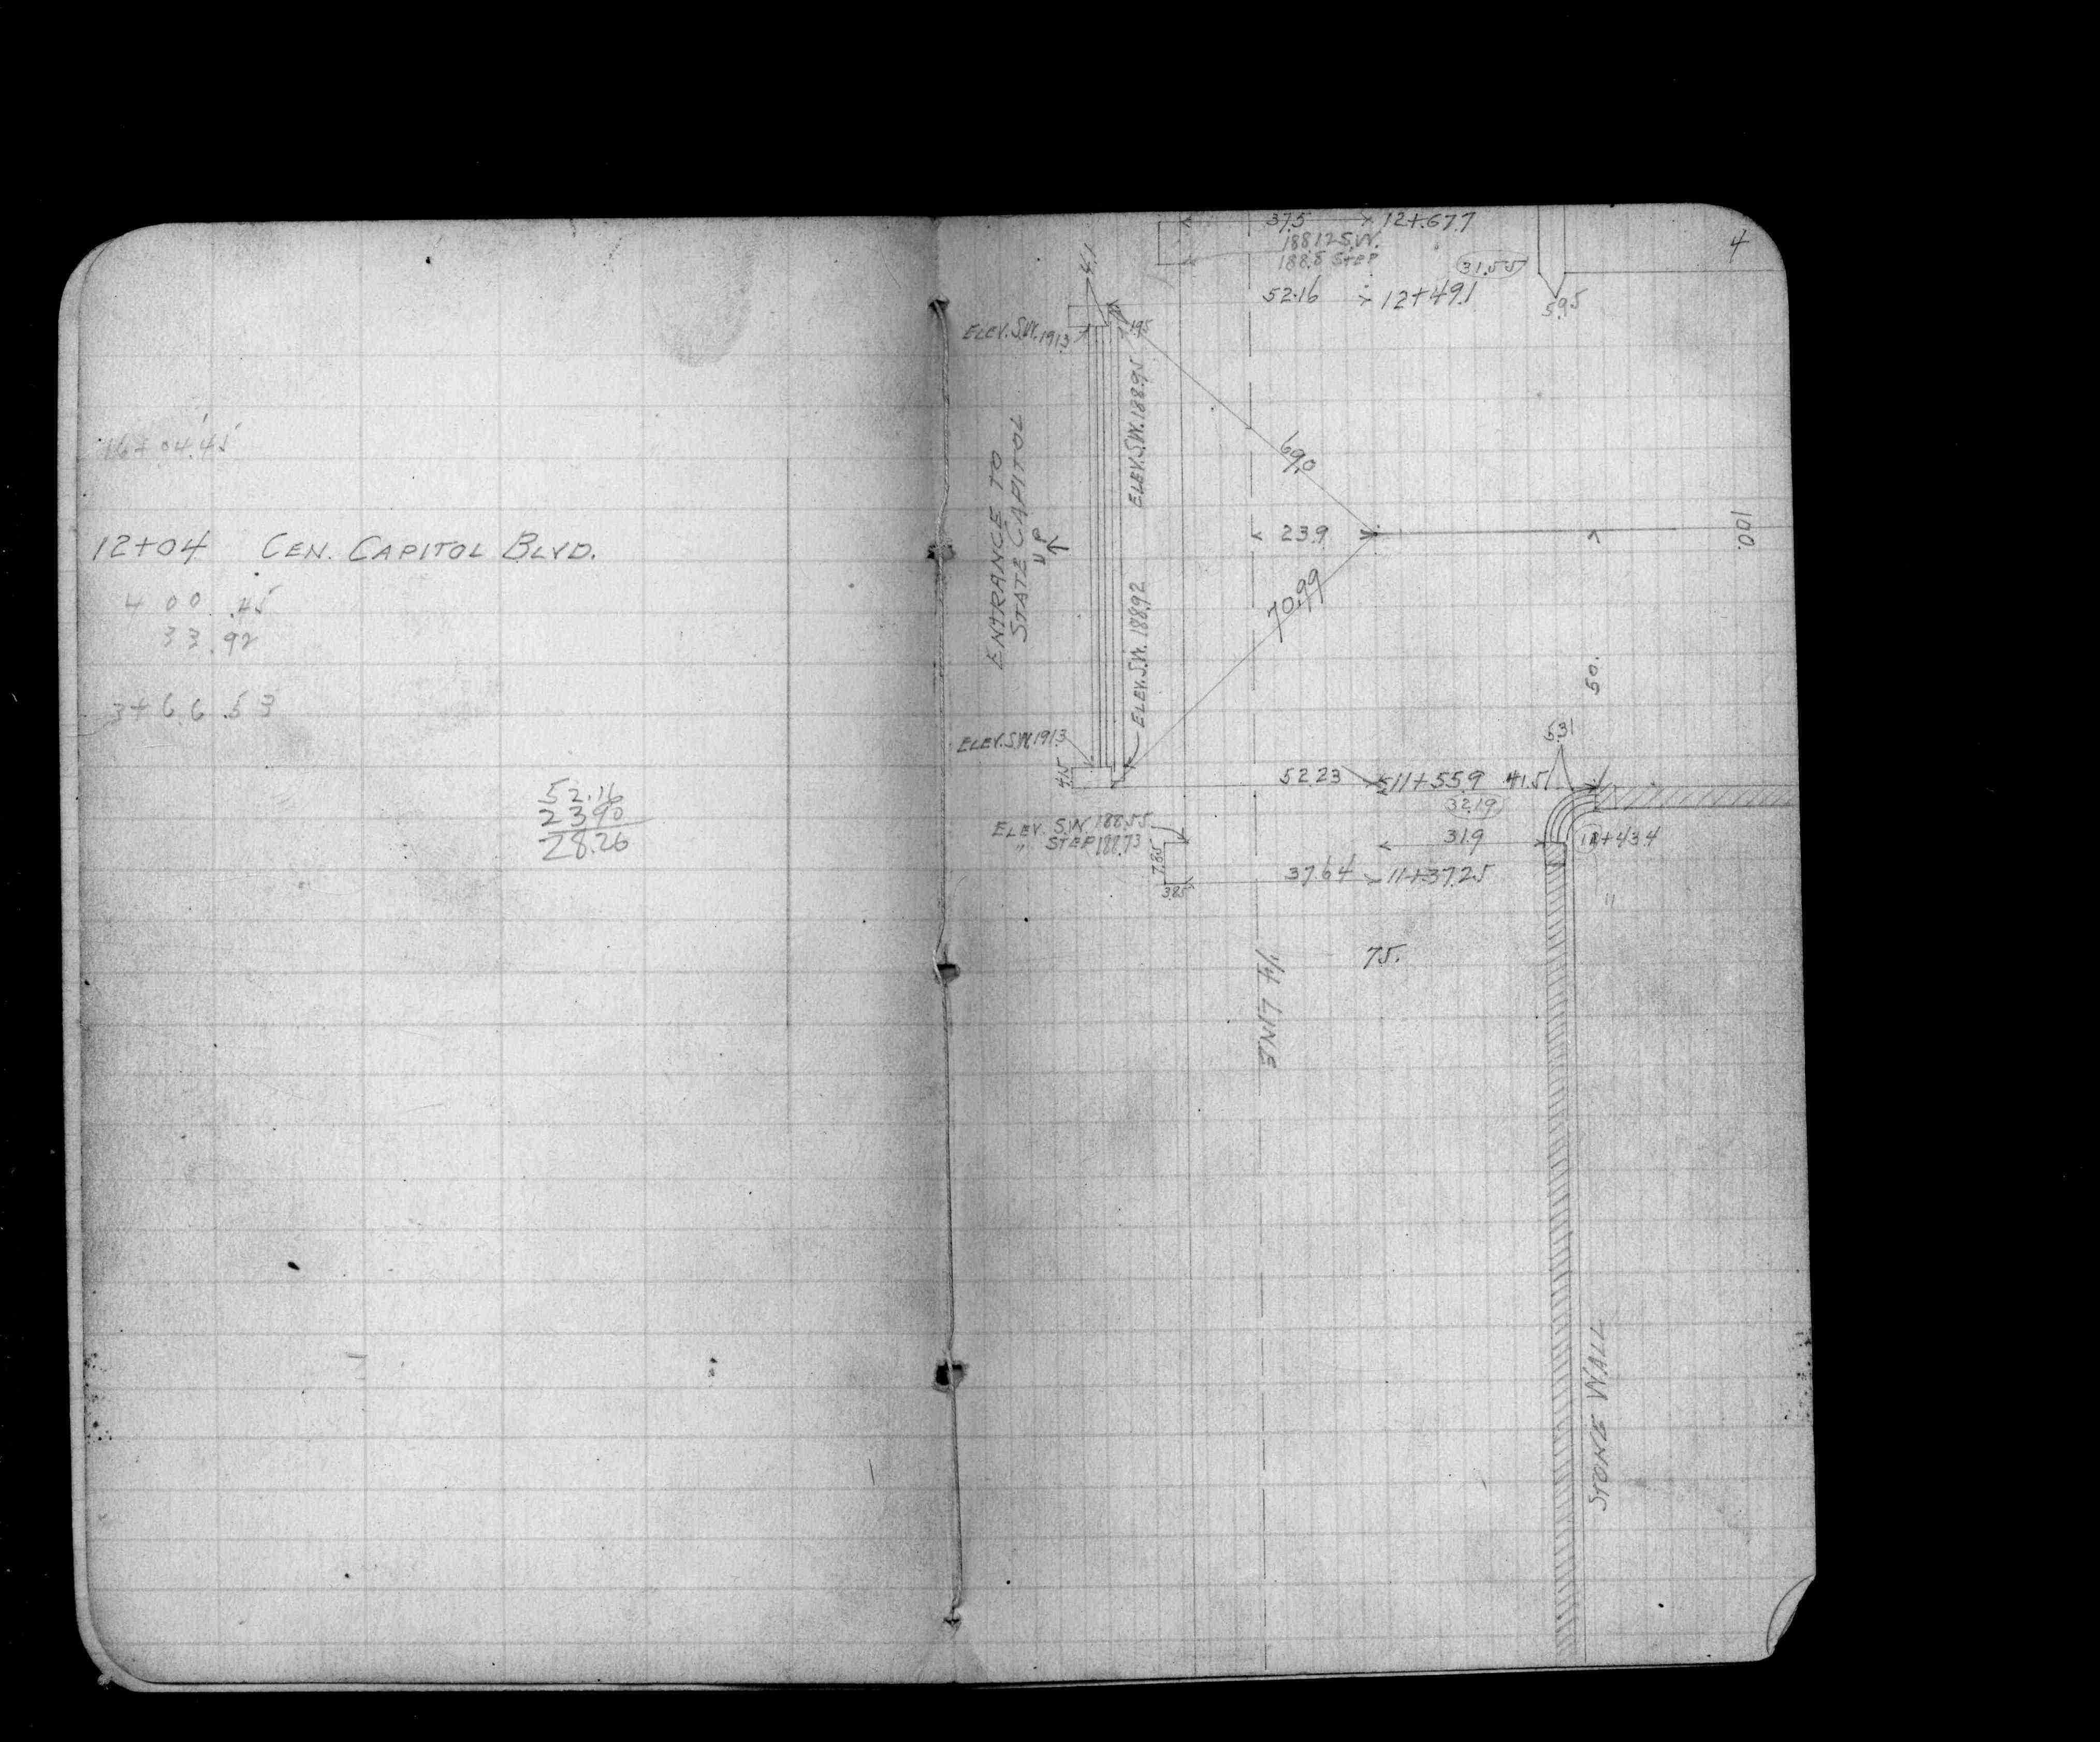 16+04.45
12+04 CEN. CAPITOL BLVD.
400.45
33.92
3+66.53
52.16
23.90
28.26
4
37.5 12+67.7
188.12 S.W.
188.8 STEP
31.55
52.16 12+49.1
59.5
4.1
ELEV. S.W. 191.3
.195
ELEV. S.W. 188.95
69.0
ENTRANCE TO
STATE CAPITOL
UP
23.9
100.
70.99
ELEV. S.W. 188.92
50.
ELEV. S.W. 191.3
4.15
5.31
52.23 11+55.9 41.5
32.19
ELEV. S.W. 188.55
" STEP 188.73
7.85
3.85
31.9
+43.4
37.64 11+37.25
"
75.
1/4 LINE
STONE WALL